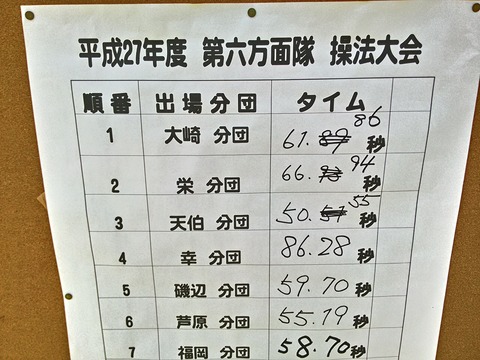 平成27年度 第六方面隊 操法大会
順番 出場分団 タイム
1 大崎 分団 61.86秒
2 栄 分団 66.94秒
3 天伯 分団 50.55秒
4 幸 分団 86.28秒
5 磯辺 分団 59.70秒
6 芦原 分団 55.19秒
7 福岡 分団 58.70秒